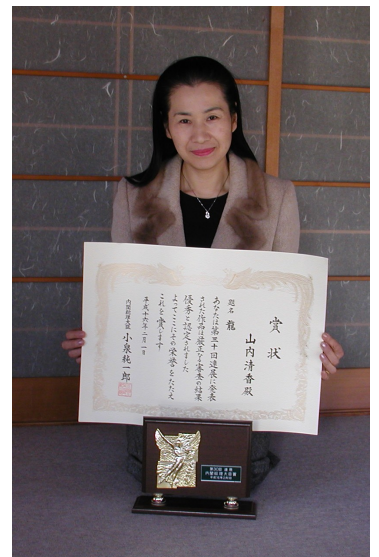 賞状
山内清香殿
題名 龍
あなたは第三十回達展に発表
された作品は厳正なる審査の結果
優秀と認定されました
よってここにその栄誉をたたえ
これを賞します
平成十六年二月一日
内閣総理大臣 小泉純一郎
第30回 達展
内閣総理大臣賞